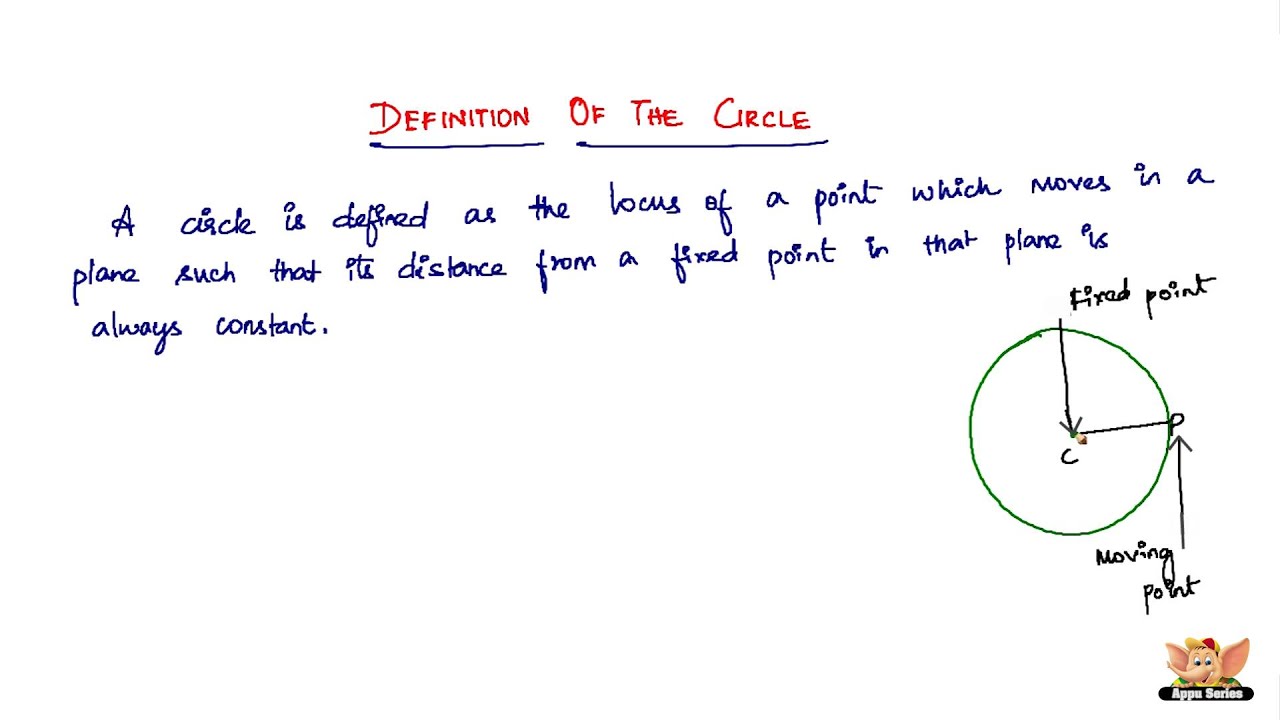 DEFINITION OF THE CIRCLE
A circle is defined as the locus of a point which moves in a
plane such that its distance from a fixed point in that plane is
always constant.
Fixed point
P
C
Moving
point
Appu Series